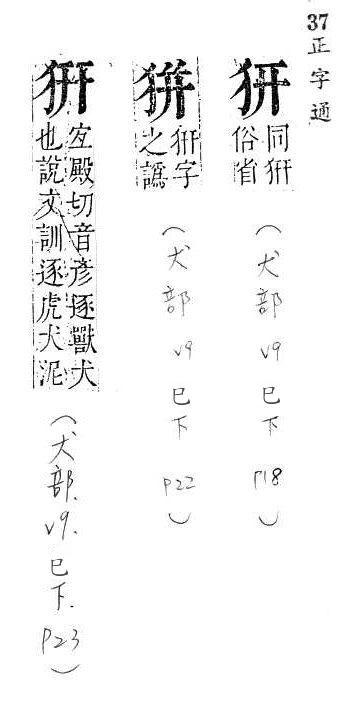 37 正字通
同
俗省
（犬部 v9 巳下 P18）
字
之譌
（犬部 v9 巳下 P22）
宐殿切音彥逐獸犬
也說文訓逐虎犬泥
（犬部. v9. 巳下. P23）